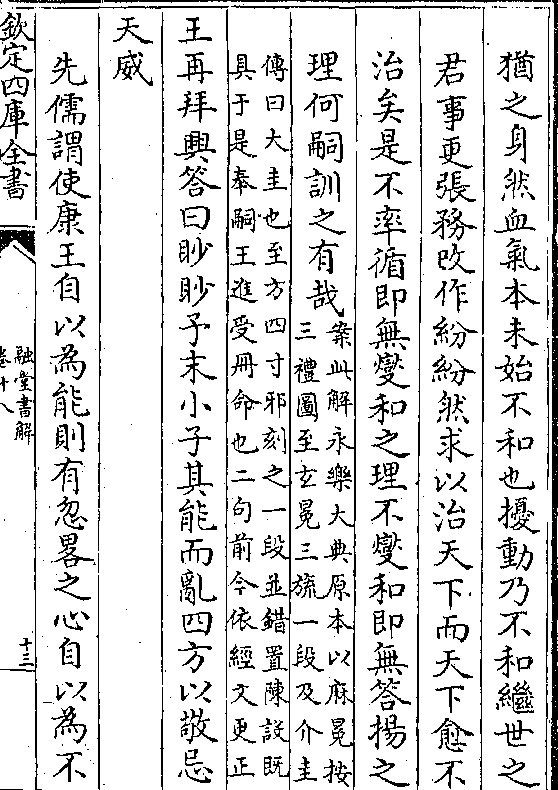 猶之身然血氣本未始不和也擾動乃不和繼世之
君事更張務改作紛紛然求以治天下而天下愈不
治矣是不率循即無燮和之理不燮和即無答揚之
理何嗣訓之有哉
案此解永樂大典原本以麻冕按
三禮圖至玄冕三旒一段及介圭
傳曰大圭也至方四寸邪刻之一段並錯置陳設既
具于是奉嗣王進受冊命也二句前今依經文更正
王再拜興答曰眇眇予末小子其能而亂四方以敬忌
天威
先儒謂使康王自以為能則有忽畧之心自以為不
欽定四庫全書
融堂書解
卷十八
十三